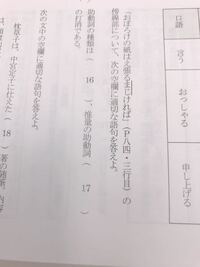 口語
言う
おっしゃる
申し上げる
「おぼろけの紙はえ張るまじければ」（Ｐ八四・三行目）の
傍線部について、次の空欄に適切な語句を答えよ。
助動詞の種類は（　16　）、推量の助動詞（　17　）
の打消である。
次の文中の空欄に適切な語句を答えよ。
枕草子は、中宮定子に仕えた（　18　）著の随筆。内容